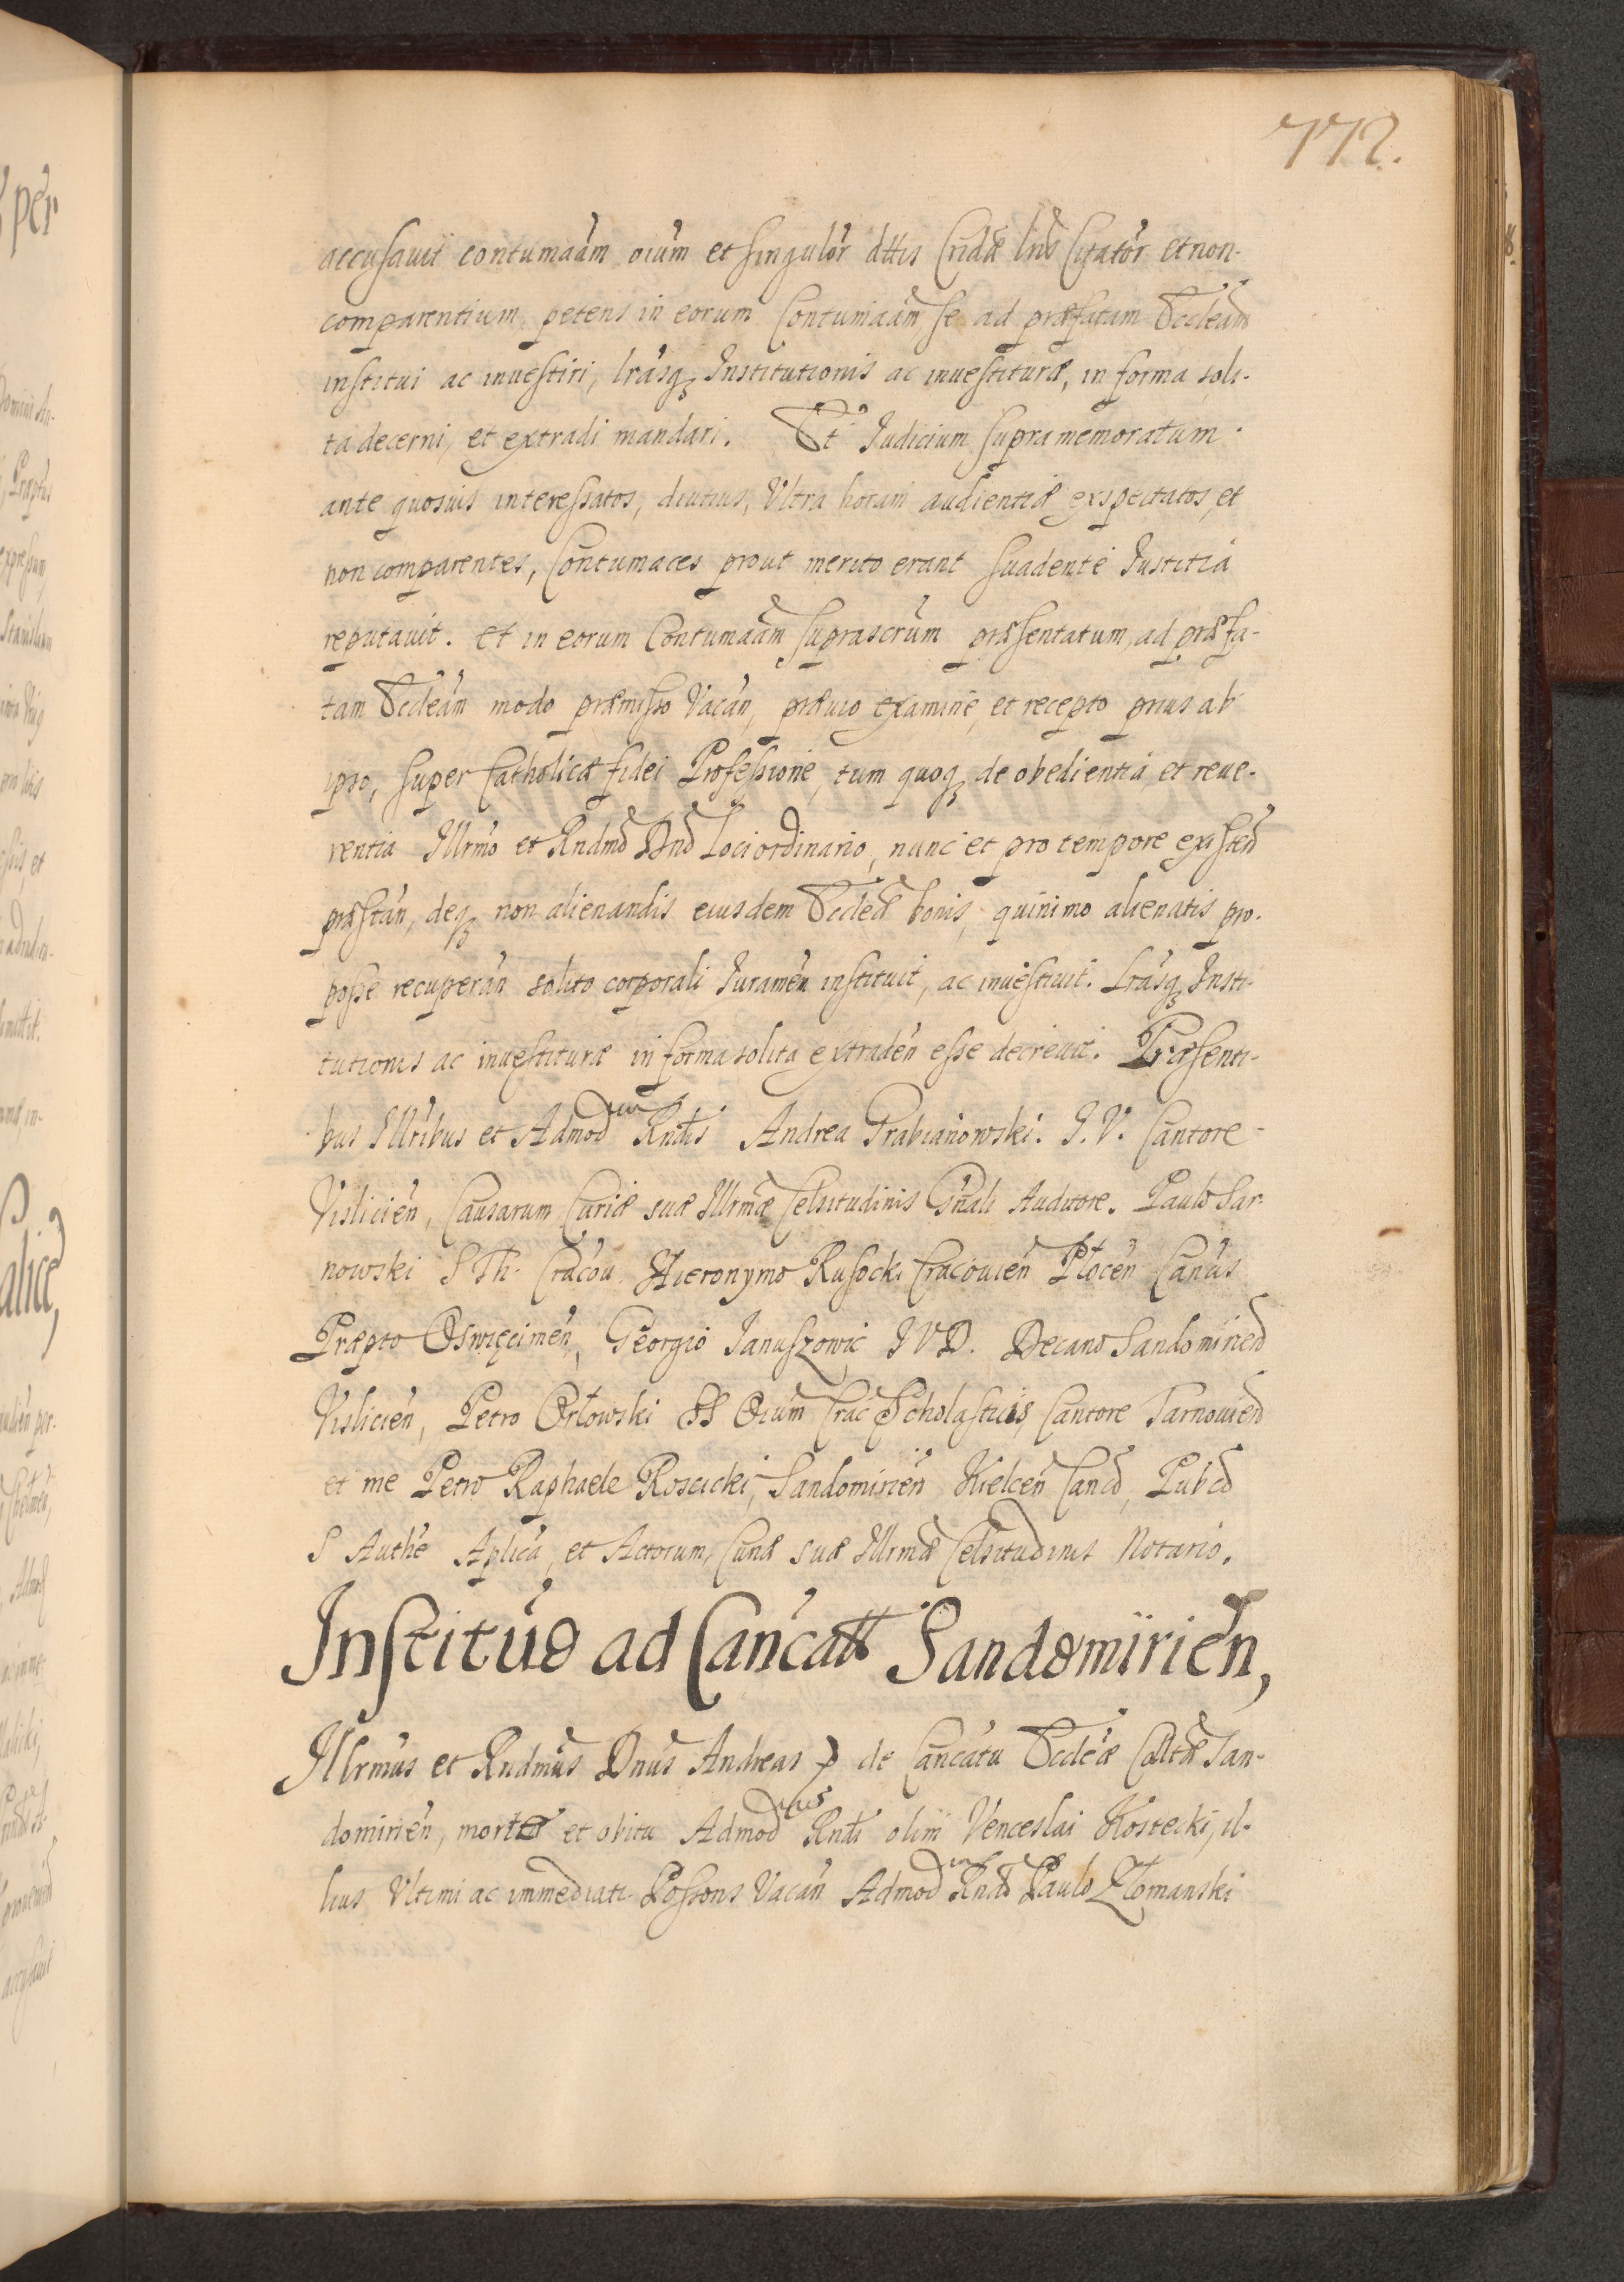 772.
accusavit contumaám oiúm et singulór dttis Cridæ Lrís Citatór et non-
comparentium, petens in eorum Contumaám se ad præfatam Eccleám
institui ac inuestiri, lrásq3 Institutionis ac inuestituræ, in forma soli-
ta decerni, et extradi mandari. Et Iudicium supramemoratum
ante quosuis interessatos, diutius, Vltra horam audientiæ expectatos, et
non comparentes, Contumaces prout merito erant suadente Iustitiá
reputauit. et in eorum Contumaám suprascrúm præsentatum, ad præfa-
tam Eccleám modo præmisso Vacán, præuio examine, et recepto prius ab
ipso, super Catholicæ fidei Professione, tum quoq3 de obedientia, et reue-
rentia Illrmo et Rndmo Dno Loci ordinario, nunc et pro tempore existeń
præstán, deq3 non alienandis eiusdem Eccleæ bonis, quinimo alienatis pro
posse recuperán solito corporali Iuramén instituit, ac inuestiuit. Lrásq3 Insti-
tutionis ac inuestituræ in forma solita extradén esse decreuit. Præsenti-
bus Illribus et Admodum Rndis Andrea Grabianowski. I. V. Cantore
Vislicién, Causarum Curiæ suæ Illrmæ Celsitudinis Gnáli Auditore. Paulo Sar-
nowski S Th. Crácou. Hieronymo Rusocki Cracouién Płocén Canćis
Præpto Oswięcimén, Georgio Ianuszowic I V D. Decano Sandomirień
Vislicién, Petro Orłowski SS Oium Crac Scholastico, Cantore Tarnouień
et me Petro Raphaele Roscicki, Sandomirién Kielcén Canco, Pubco
S Authe Aplicá, et Actorum, Curiæ suæ Illrmæ Celsitudinis Notario.
Institúo ad Cancatt Sandomirién,
Illrmus et Rndmus Dnus Andreas p de Cancátu Eccleæ Cottæ San-
domirién, morte et obitu Admodum Rndi olim Venceslai Kostecki, il-
lius Vltimi ac immediati Possons Vacán Admodum Rndo Paulo Złomanski